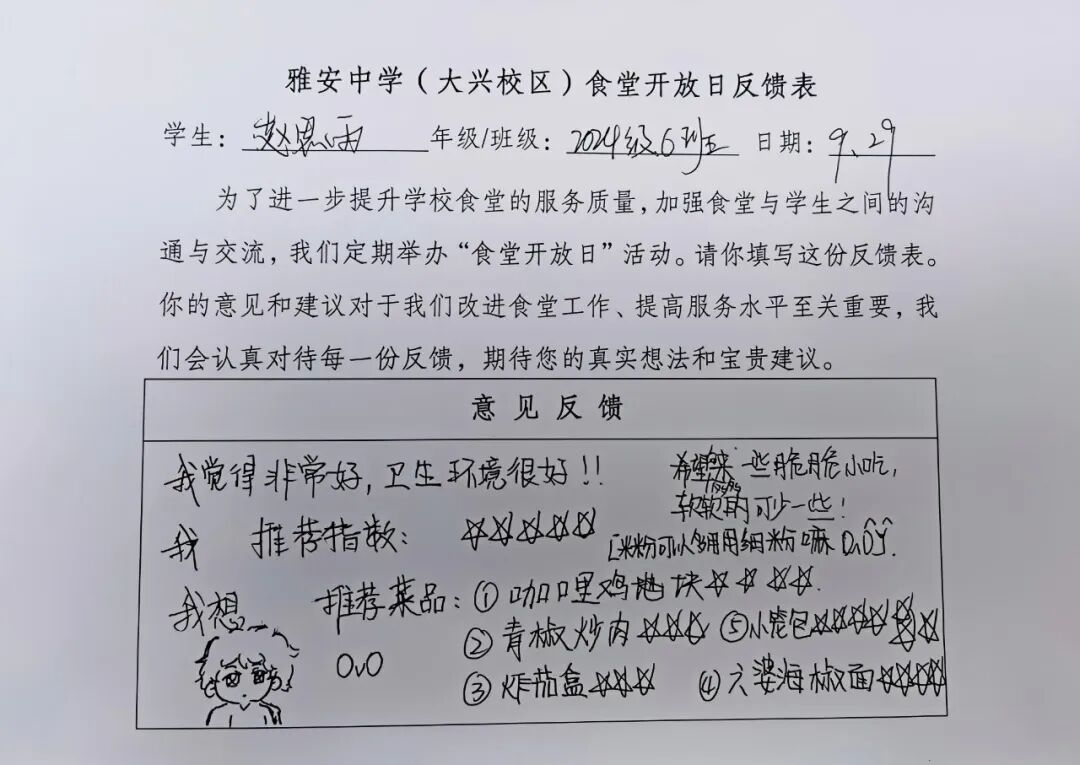 雅安中学（大兴校区）食堂开放日反馈表
学生：赵思雨 年级/班级：2024级6班 日期：9.29
为了进一步提升学校食堂的服务质量，加强食堂与学生之间的沟
通与交流，我们定期举办“食堂开放日”活动。请你填写这份反馈表。
你的意见和建议对于我们改进食堂工作、提高服务水平至关重要，我
们会认真对待每一份反馈，期待您的真实想法和宝贵建议。
意见反馈
我觉得非常好，卫生环境很好！！
希望来一些脆脆小吃，
软软的可少一些！
我 推荐指数：☆☆☆☆☆
[米粉可以多用用细粉嘛
我想 推荐菜品：①咖哩鸡地块☆☆☆☆
②青椒炒肉☆☆☆ ⑤小笼包☆☆☆☆☆☆
OvO
③炸茄盒☆☆☆ ④六婆海椒面☆☆☆☆